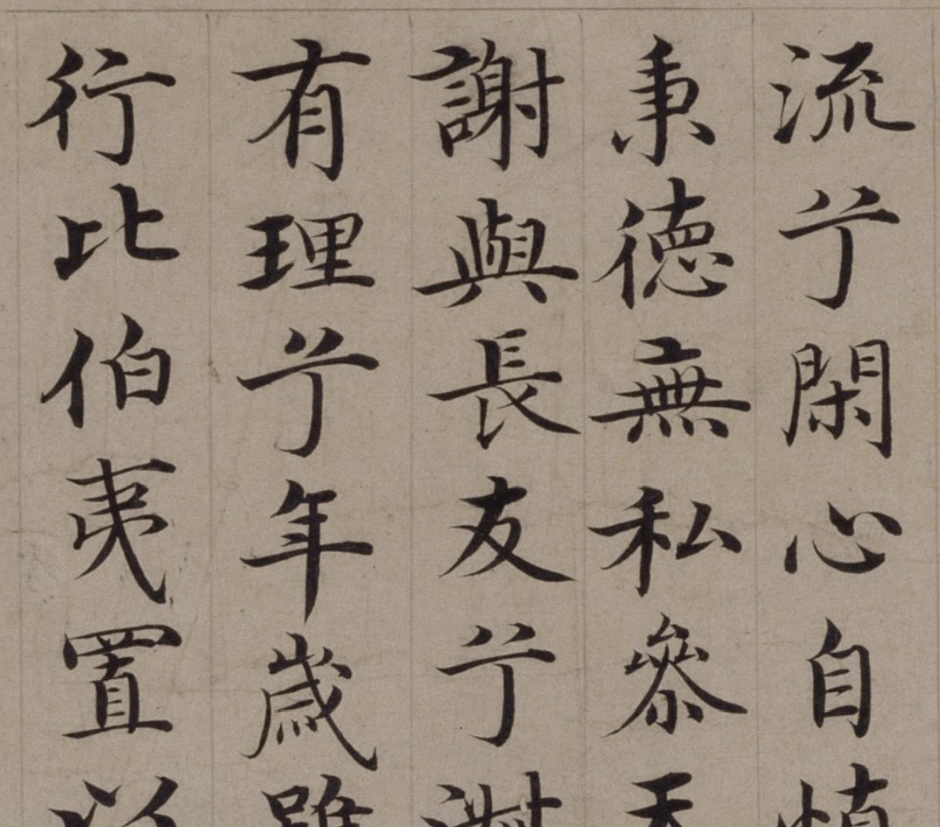 流兮閑心自慎
秉德無私參天
謝與長友兮淑
有理兮年歲雖
行比伯夷置以